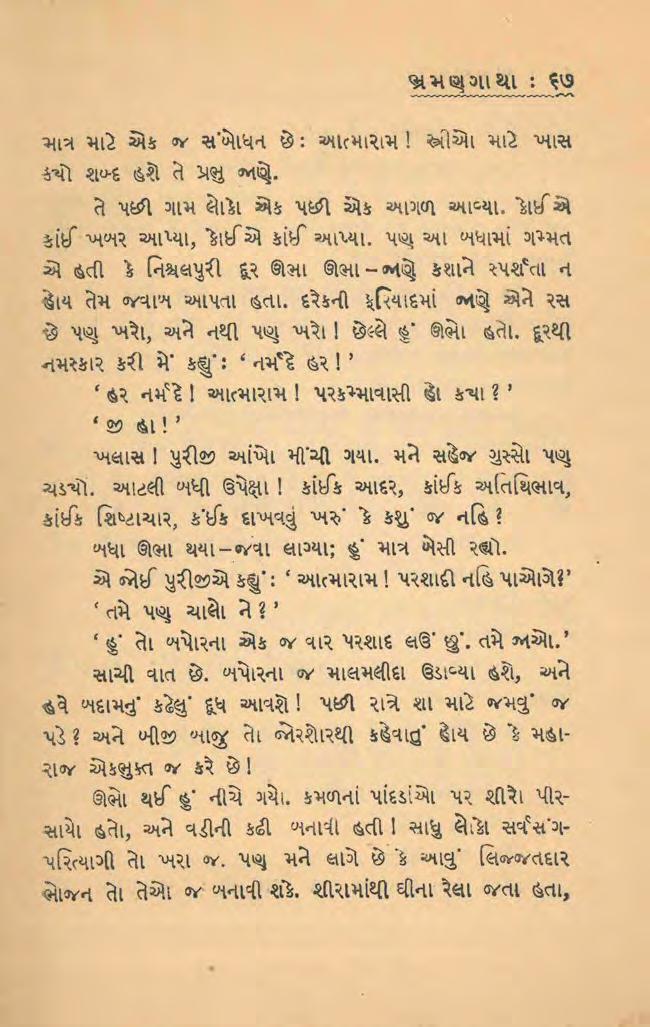 ભ્રમણગાથા : ૬૭
માત્ર માટે એક જ સંબોધન છે: આત્મારામ! સ્ત્રીઓ માટે ખાસ
કયો શબ્દ હશે તે પ્રભુ જાણે.
તે પછી ગામ લોકો એક પછી એક આગળ આવ્યા. કોઈએ
કાંઈ ખબર આપ્યા, કોઈએ કાંઈ આપ્યા. પણ આ બધામાં ગમ્મત
એ હતી કે નિશ્ચલપુરી દૂર ઊભા ઊભા–જાણે કશાને સ્પર્શતા ન
હોય તેમ જવાબ આપતા હતા. દરેકની ફરિયાદમાં જાણે એને રસ
છે પણ ખરો, અને નથી પણ ખરો! છેલ્લે હું ઊભો હતો. દૂરથી
નમસ્કાર કરી મેં કહ્યું: ‘નર્મદે હર!’
‘હર નર્મદે! આત્મારામ! પરકમ્માવાસી હો કયા?’
‘જી હા!’
ખલાસ! પુરીજી આંખો મીંચી ગયા. મને સહેજ ગુસ્સો પણ
ચડ્યો. આટલી બધી ઉપેક્ષા! કાંઈક આદર, કાંઈક અતિથિભાવ,
કાંઈક શિષ્ટાચાર, કંઈક દાખવવું ખરું કે કશું જ નહિ?
બધા ઊભા થયા–જવા લાગ્યા; હું માત્ર બેસી રહ્યો.
એ જોઈ પુરીજીએ કહ્યું: ‘આત્મારામ! પરશાદી નહિ પાઓગે?’
‘તમે પણ ચાલો ને?’
‘હું તો બપોરના એક જ વાર પરશાદ લઉં છું. તમે જાઓ.’
સાચી વાત છે. બપોરના જ માલમલીદા ઉડાવ્યા હશે, અને
હવે બદામનું કઢેલું દૂધ આવશે! પછી રાત્રે શા માટે જમવું જ
પડે? અને બીજી બાજુ તો જોરશોરથી કહેવાતું હોય છે કે મહા-
રાજ એકભુક્ત જ કરે છે!
ઊભો થઈ હું નીચે ગયો. કમળનાં પાંદડાંઓ પર શીરો પીર-
સાયો હતો, અને વડીની કઢી બનાવી હતી! સાધુ લોકો સર્વસંગ-
પરિત્યાગી તો ખરા જ. પણ મને લાગે છે કે આવું લિજ્જતદાર
ભોજન તો તેઓ જ બનાવી શકે. શીરામાંથી ઘીના રેલા જતા હતા,